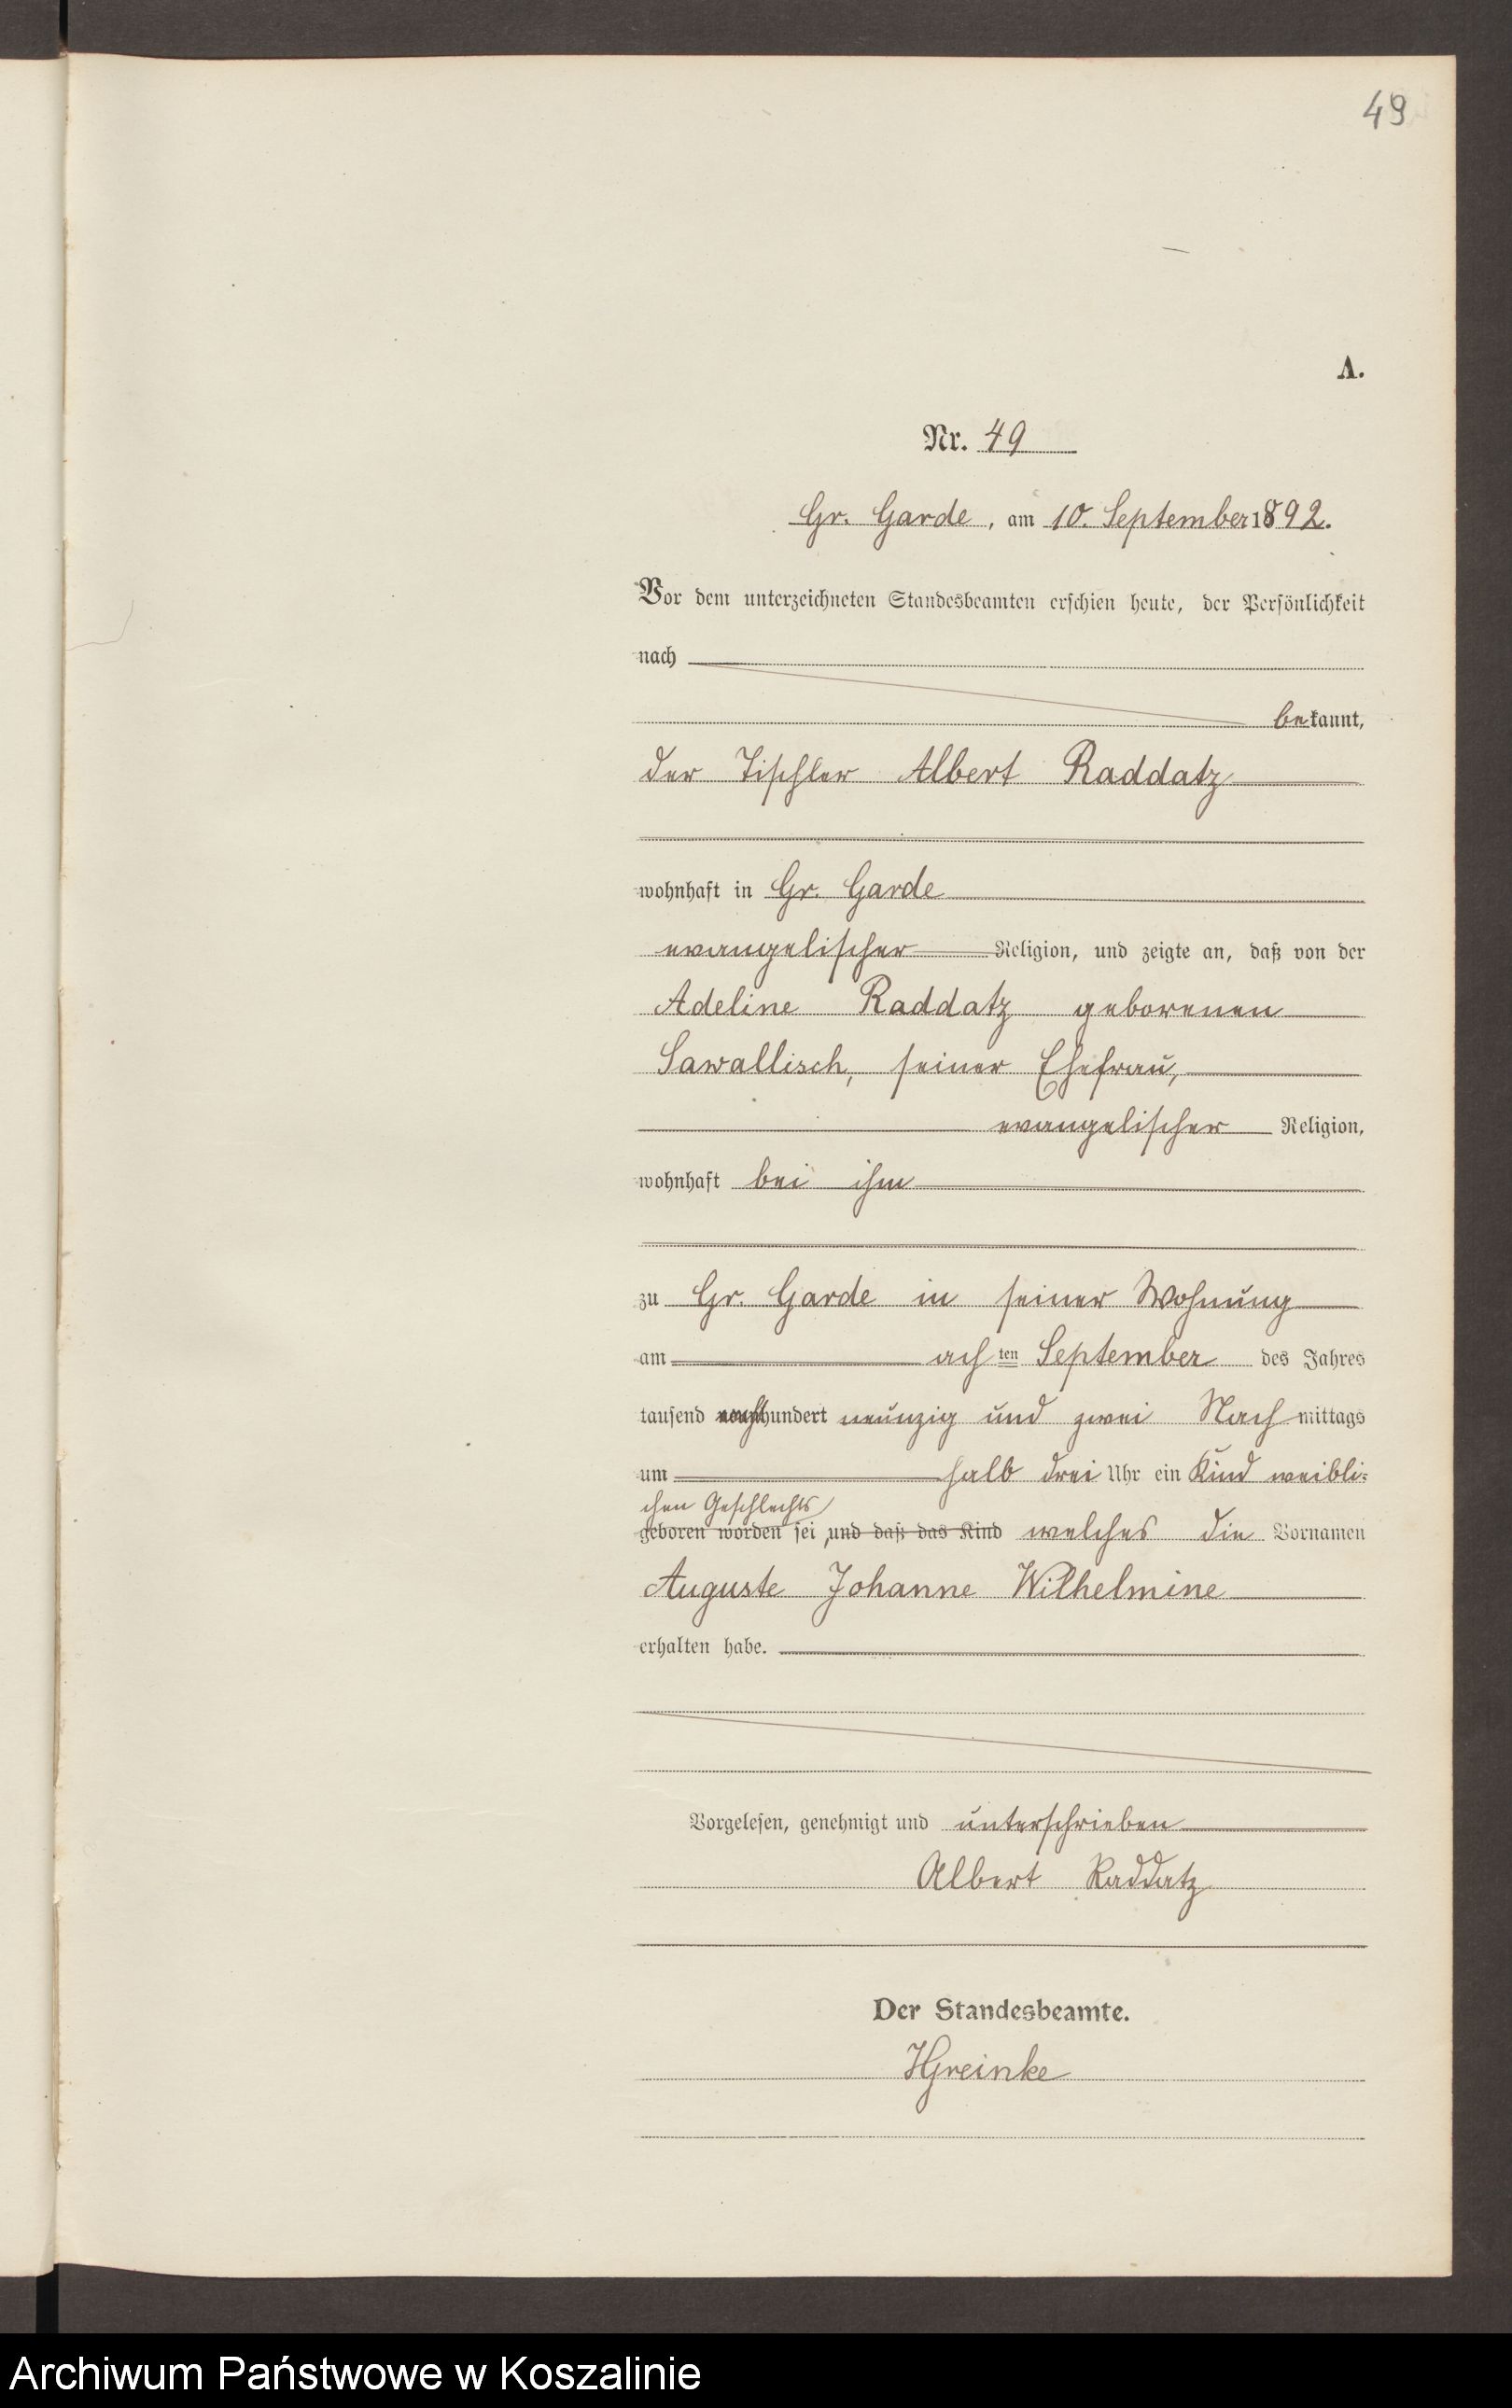 49
A.
Nr. 49
Gr. Garde, am 10. September 1892.
Vor dem unterzeichneten Standesbeamten erschien heute, der Persönlichkeit
nach
bekannt,
der Tischler Albert Raddatz
wohnhaft in Gr. Garde
evangelischer Religion, und zeigte an, daß von der
Adeline Raddatz geborenen
Sawallisch, seiner Ehefrau,
evangelischer Religion,
wohnhaft bei ihm
zu Gr. Garde in seiner Wohnung
am achten September des Jahres
tausend achthundert neunzig und zwei Nachmittags
um halb drei Uhr ein Kind weibli-
chen Geschlechts
geboren worden sei, und daß das Kind welches die Vornamen
Auguste Johanne Wilhelmine
erhalten habe.
Vorgelesen, genehmigt und unterschrieben
Albert Raddatz
Der Standesbeamte.
HGreinke
Archiwum Państwowe w Koszalinie